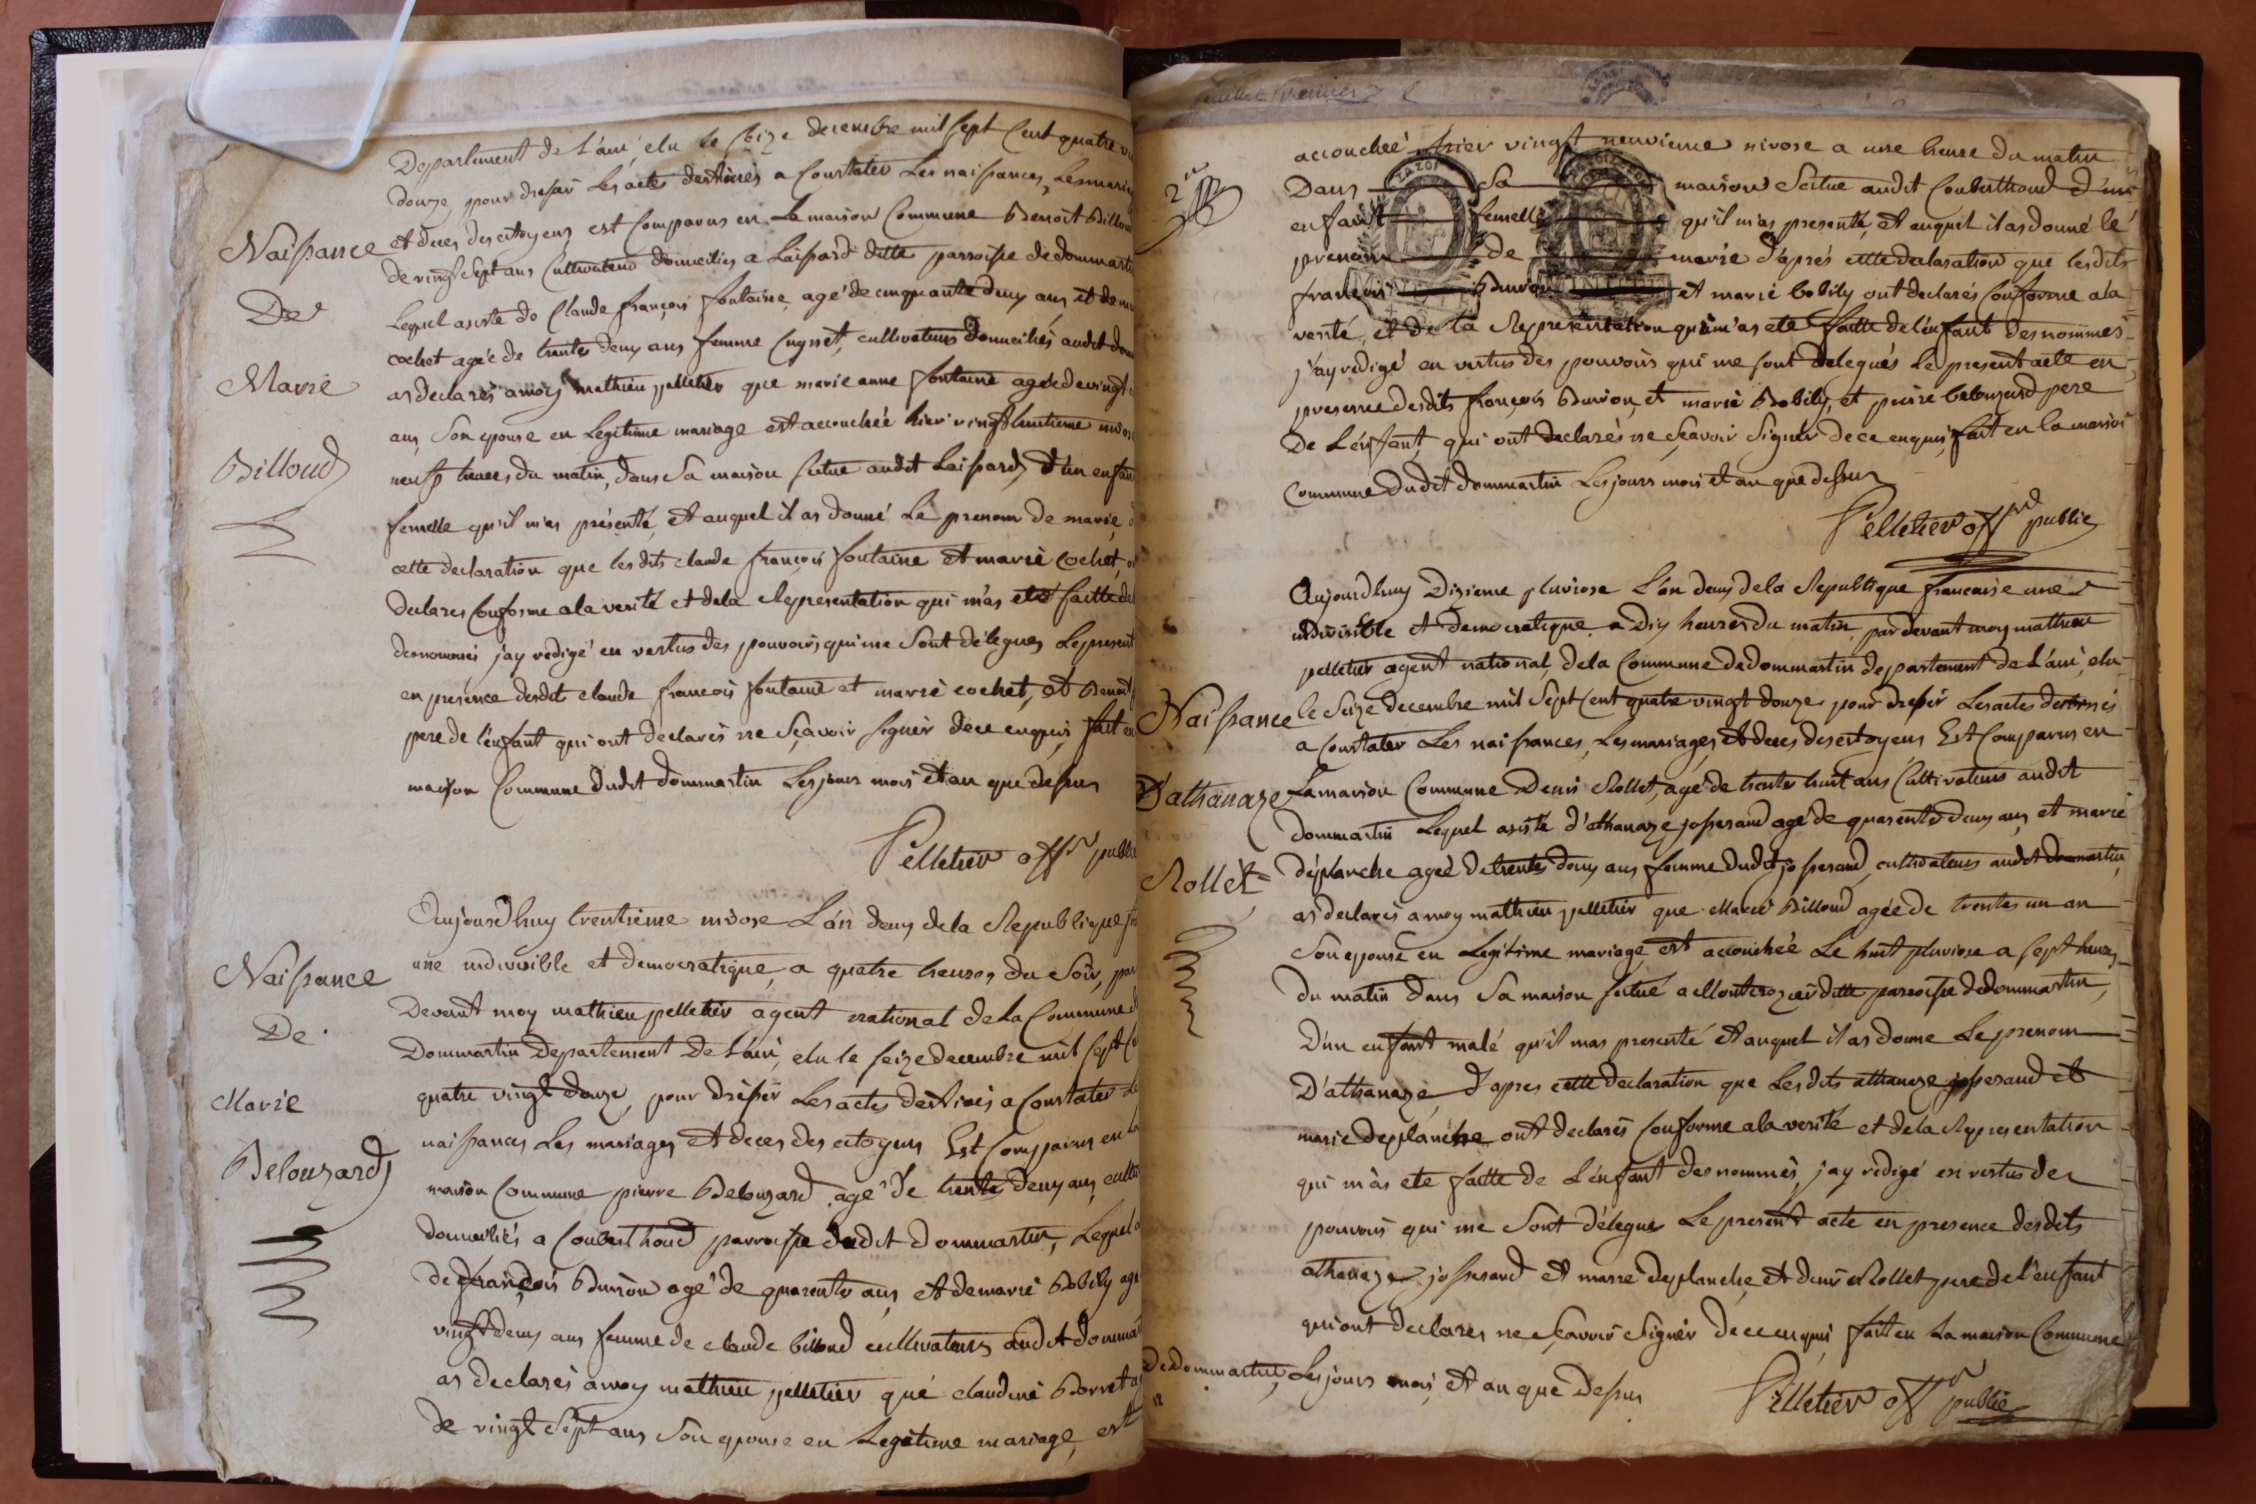 Departement de L'ain, elu le seize decembre mil sept cent quatre
douze, pour dresser Les actes destinés a Constater Les naissances, Les
et deces des citoyens est Comparus en La maison Commune Benoit Billoud
Naissance
De
Marie
Billoud
de vingt sept ans Cultivateur domicilies a Laissard ditte parroisse de dommartin
Lequel asisté de Claude françois fontaine, agé de cinquante deux ans, et de
cochet agée de trente deux ans femme Cugnet, cultivateurs domiciliés audit
as declarés a moy mathieu pelletier que marie anne fontaine agée de vingt
ans, Son epouse en Legitime mariage est accouchée hier vingt huitieme nivose
neuf heures du matin, dans Sa maison situe audit Laissard, d'un enfant
femelle qu'il m'as présenté, et auquel il as donné Le prenom de marie,
cette declaration que les dits claude françois fontaine et marie cochet,
declares Conforme a la verité et de la Representation qui m'as eté faitte de
denommés j'ay redigé en vertus des pouvoirs qui me Sont délegues Le present
en présence desdit claude françois fontaine et marie cochet, et Benoit
pere de l'enfant qui ont declarés ne Sçavoir signer de ce enquis, fait en
maison Commune dudit dommartin Les jours mois et an que dessus
Pelletier offr public
Naissance
De
Marie
Belouzard
Aujourd'huy trentieme nivose L'an deux de la Republique
une indivisible et democratique, a quatre heures du Soir, par
Devant moy mathieu pelletier agent national de La Commune
Dommartin Departement De L'ain, elu le seize decembre mil sept
quatre vingt douze, pour dresser Les actes destinés a Constater
naissances Les mariages et deces des citoyens Est Comparus en la
maison Commune pierre Belouzard agé de trente deux ans,
domiciliés a Couberthoud parroisse dudit dommartin, Lequel
de françois Buiron agé de quarente ans, et de marie Bobily
vingt deux ans femme de claude billoud cultivateurs audit
as declarés a moy mathieu pelletier qué claudine Borret
de vingt Sept ans Son epouse en Legitime mariage, est
2e
accouchéé hier vingt neuvieme nivose a une heure du matin
Dans sa maison Scitue audit Couberthoud d'un
enfant femelle qu'il m'as presenté, et auquel il as donné lé
prenom de marie d'aprés cette declaration que les dits
françois Buiron et marie bobily ont declarés Conforme a la
verité, et de la Representation qui m'as eté faitte de l'enfant des nommes
j'ay redigé en vertus des pouvoirs qui me sont delegués Le present acte en
presence desdits françois Buiron, et marie Bobily, et pierre belouzard pere
De L'enfant, qui ont declarés ne Sçavoir Signer de ce enquis, fait en la maison
Commune dudit dommartin Les jours mois et an que dessus
Pelletier offr public
Naissance
D'athanaze
Rollet
Aujourd'huy Dixieme pluviose L'an deux de la Republique francaise une
indivisible et democratique a Dix heures du matin, par devant moy mathieu
pelletier agent national, de la Commune de dommartin departement de L'ain, elu
le Seize decembre mil Sept Cent quatre vingt douze pour dresser Les actes destinés
a Constater Les naissances, Les mariages, et deces des citoyens Est Comparus en
La maison Commune Denis Rollet, agé de trente huit ans Cultivateurs audit
dommartin Lequel asisté d'athanaze josserand agé de quarente deux ans, et marie
déplanche agéé de trente deux ans femme dudit josserand, cultivateurs audit dommartin,
as declarés a moy mathieu pelletier que Marie Billoud agée de trentes un an
Son epouse en Legitime mariage est accouchée Le huit pluviose a sept heures
du matin dans Sa maison scitué a Montcrozier ditte parroisse de dommartin,
D'un enfant malé qu'il mas presenté et auquel il as donne Le prenom
D'athanaze, d'apres cette declaration que Les dits athanaze josserand et
marie deplanche ont declarés Conforme a la verité et de la Representation
qui m'as ete faitte de L'enfant des nommés, j'ay redigé en vertus des
pouvoirs qui me Sont délegués Le present acte en presence desdits
athanaze josserand et marie deplanche, et denis Rollet pere de l'enfant
qui ont declares ne Sçavoir Signer de ce enquis fait en La maison Commune
de dommartin, Les jours mois, et an que Dessus
Pelletier offr public